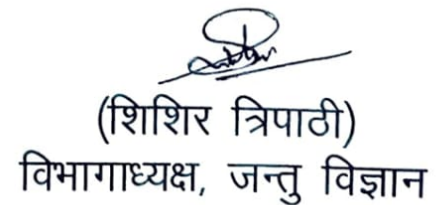 (शिशिर त्रिपाठी)
विभागाध्यक्ष, जन्तु विज्ञान